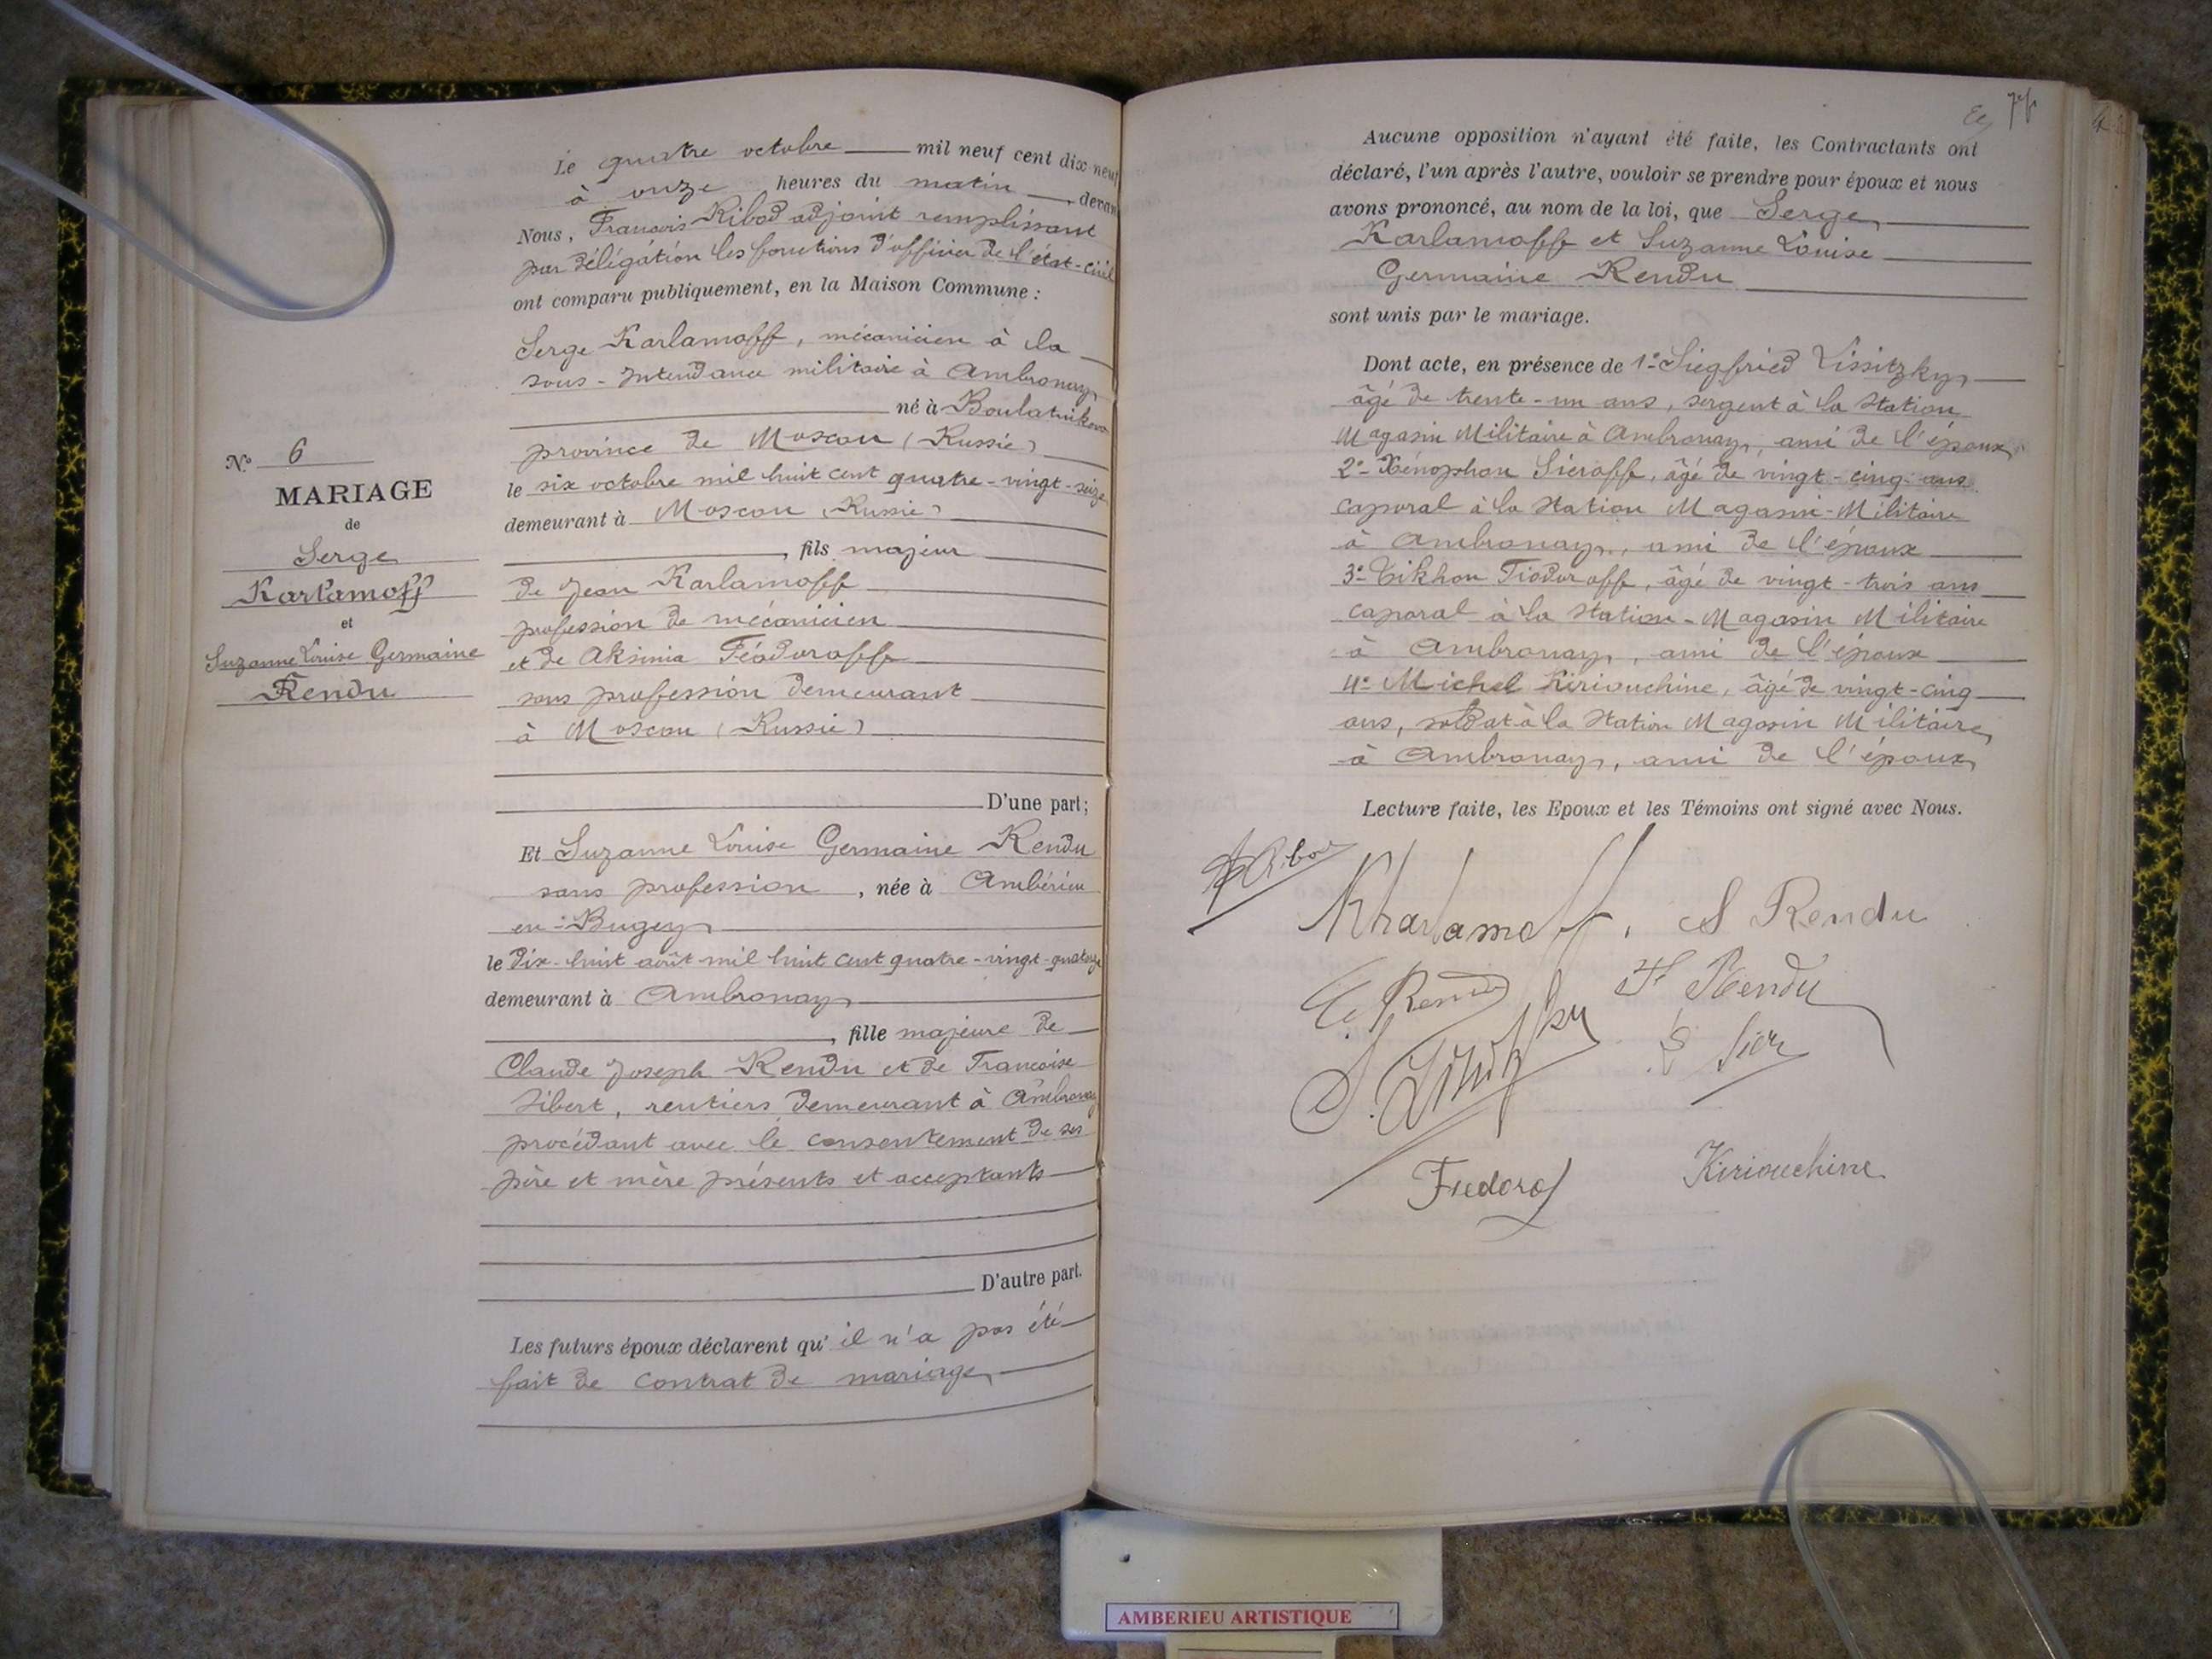 Le quatre octobre mil neuf cent dix neuf
à onze heures du matin, devan
Nous, François Ribod adjoint remplissant
par délégation les fonctions d'officier de l'état-civil
ont comparu publiquement, en la Maison Commune :
Serge Karlamoff, mécanicien à la
sous-Intendance militaire à Ambronay
né à Boulatnikovo
province de Moscou (Russie)
le six octobre mil huit cent quatre-vingt-seize
demeurant à Moscou (Russie)
, fils majeur
de Jean Karlamoff
profession de mécanicien
et de Aksinia Féodoroff
sans profession demeurant
à Moscou (Russie)
D'une part;
Et Suzanne Louise Germaine Rendu
sans profession, née à Ambérieu
en-Bugey
le dix-huit août mil huit cent quatre-vingt-quatorze
demeurant à Ambronay
, fille majeure de
Claude Joseph Rendu et de Françoise
Sibert, rentiers demeurant à Ambronay
procédant avec le consentement de ses
père et mère présents et acceptants
D'autre part.
Les futurs époux déclarent qu'il n'a pas été
fait de contrat de mariage
N° 6
MARIAGE
de
Serge
Karlamoff
et
Suzanne Louise Germaine
Rendu
Aucune opposition n'ayant été faite, les Contractants ont
déclaré, l'un après l'autre, vouloir se prendre pour époux et nous
avons prononcé, au nom de la loi, que Serge
Karlamoff et Suzanne Louise
Germaine Rendu
sont unis par le mariage.
Dont acte, en présence de 1°- Siegfried Lissitzky
âgé de trente-un ans, sergent à la Station
Magasin Militaire à Ambronay, ami de l'époux
2°- Xénophon Sieroff, âgé de vingt-cinq ans
caporal à la Station Magasin-Militaire
à Ambronay, ami de l'époux
3°- Tikhon Fiodoroff, âgé de vingt-trois ans
caporal à la Station-Magasin Militaire
à Ambronay, ami de l'époux
4°- Michel Kiriouchine, âgé de vingt-cinq
ans, soldat à la Station Magasin Militaire
à Ambronay, ami de l'époux
Lecture faite, les Epoux et les Témoins ont signé avec Nous.
Kharlamoff. S Rendu
Rendu
Fr Rendu
Kiriouchine
AMBERIEU ARTISTIQUE